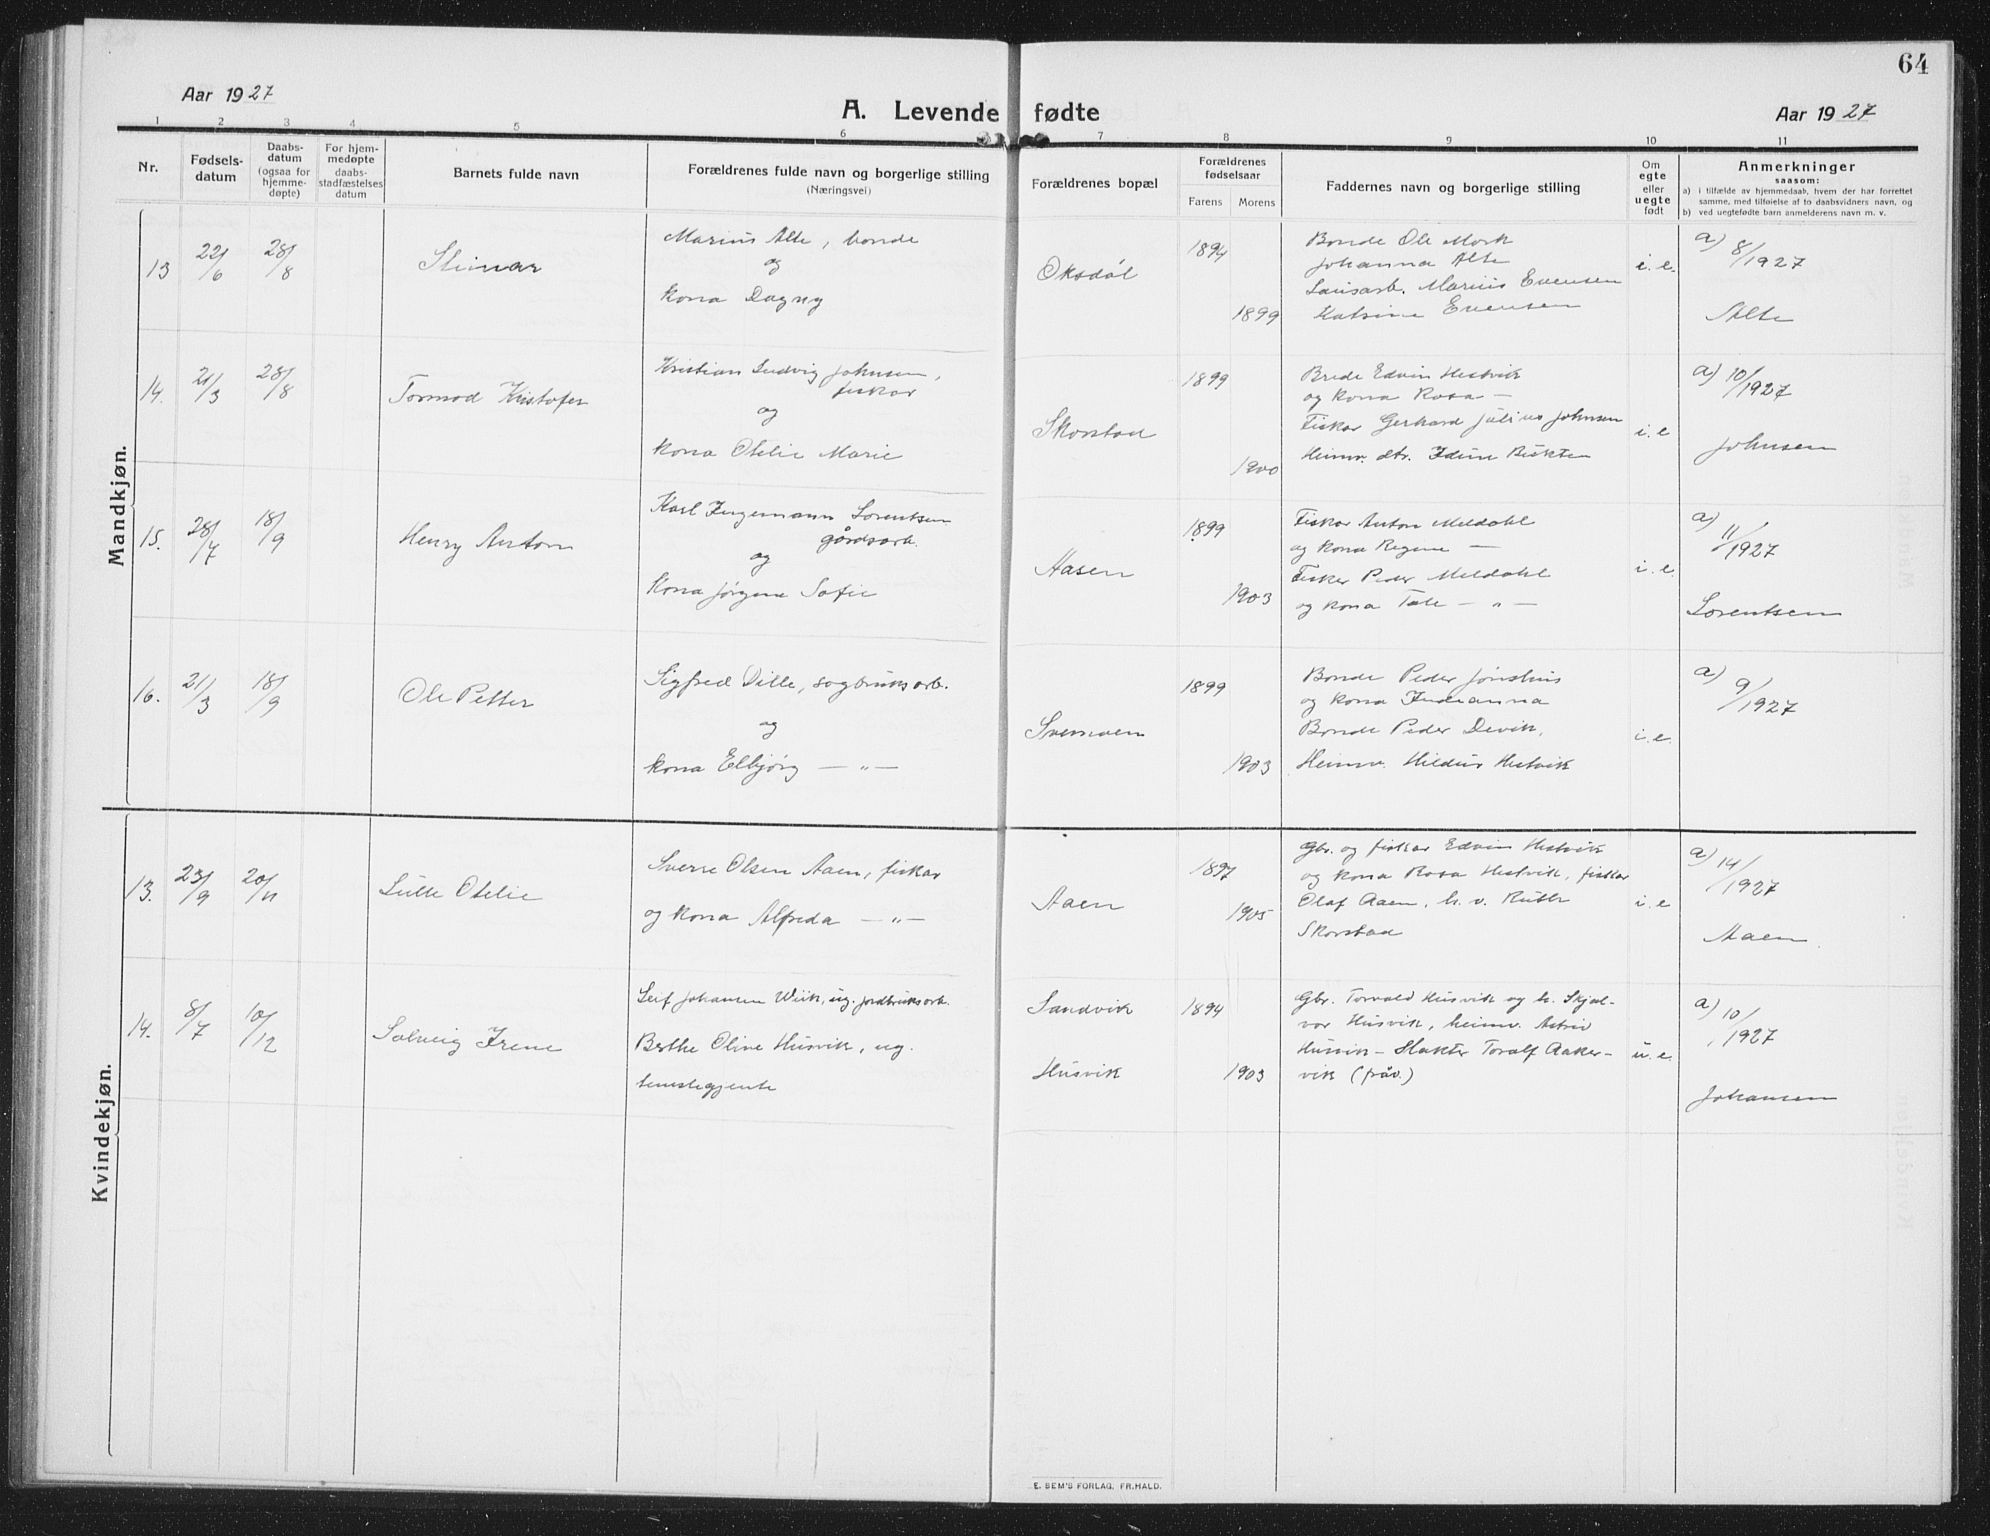 64
Aar 1927
A. Levende fødte
Aar 1927
1 2 3 4 5 6 7 8 9 10 11
Nr.
Fødsels-
datum
Daabs-
datum
(ogsaa for
hjemme-
døpte)
For hjem-
medøpte
daabs-
stadfæstelses
datum
Barnets fulde navn
Forældrenes fulde navn og borgerlige stilling
(Næringsvei)
Forældrenes bopæl
Forældrenes
fødselsaar
Farens Morens
Faddernes navn og borgerlige stilling
Om
egte
eller
uegte
født
Anmerkninger
saasom:
a) i tilfælde av hjemmedaab, hvem der har forrettet
samme, med tilføielse av to daabsvidners navn, og
b) ved uegtefødte barn anmelderens navn m. v.
Mandkjøn.
13 22/6 28/8 Steinar
Marius Alte, bonde
og
kona Dagny
Oksdøl
1894
1899
Bonde Ole Mork
Johanna Alte
Lausarb. Marius Evensen
Katrine Evensen
i. e.
a) 8/1927
Alte
14. 21/3 28/8 Tormod Kristofer
Kristian Ludvig Johnsen,
fiskar
og
kona Otelie Marie
Skorstad
1899
1900
Brede Edvin Hestvik
og kona Rosa —
Fiskar Gerhard Julius Johnsen
Heimv. dtr.
i. e
a) 10/1927
Johnsen
15. 28/7 18/9 Henry Anton
Karl Ingemann Lorentsen
gårdsarb.
og
Kona Jørgine Sofie
Aasen
1899
1903
Fiskar Anton Meldahl
og kona Regine —
Fisker Peder Meldahl
og kona Tale — „ —
i. e.
a) 11/1927
Lorentsen
16. 21/3 18/9 Ole Petter
Sigfred Dille, sagbruksarb.
og
kona Elbjørg — „ —
Svemoen
1899
1903
Bonde Peder Jønshus
og kona Indianna
Bonde Peder Devik,
Heimv. Hildur Hestvik
i. e.
a) 9/1927
Kvindekjøn.
13. 23/9 20/11 Lulle Otelie
Sverre Olsen Aaen, fiskar
og kona Alfreda — „ —
Aaen
1897
1905
Gbr. og fiskar Edvin Hestvik
og kona Rosa Hestvik, fiskar
Olaf Aaen, h. v. Ruth
Skorstad
i. e
a) 14/1927
Aaen
14. 8/7 10/12 Solveig Irene
Leif Johansen Wiik, ug. jordbruksarb.
Berthe Oline Husvik, ug.
tenestegjente
Sandvik
Husvik
1894
1903
Gbr. Torvald Husvik og h. Skjal-
vor Husvik, heimv. Astrid
Husvik — Hakter Toralf Aaker-
vik (fråv.)
u. e.
a) 10/1927
Johansen
E. SEM'S FORLAG. FR.HALD.